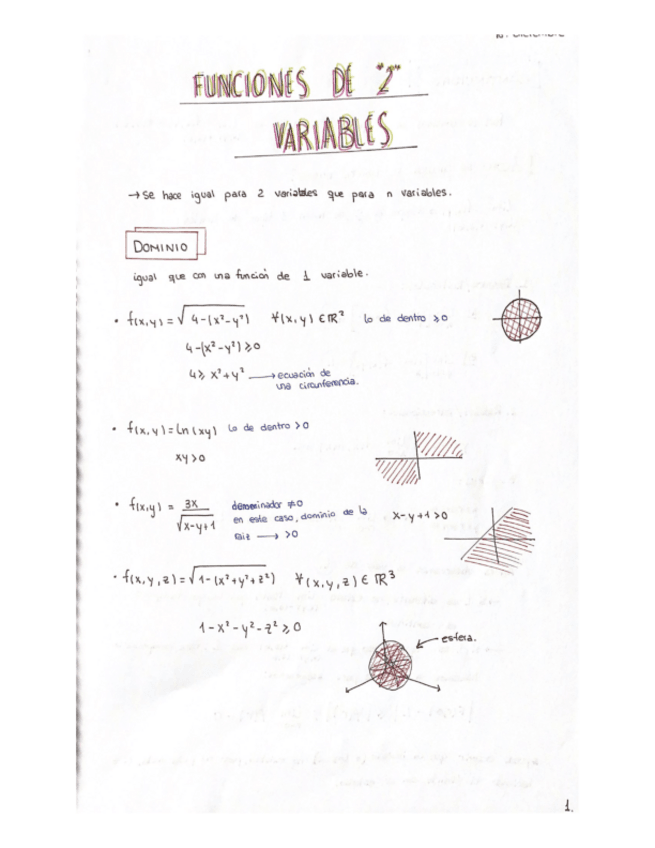 FUNCIONES DE "2"
VARIABLES
→ Se hace igual para 2 variables que para n variables.
DOMINIO
igual que con una función de 1 variable.
• f(x,y) = √4-(x²-y²) ∀(x,y) ∈ ℝ² lo de dentro ≥0
4-(x²-y²) ≥0
4≥ x²+y² → ecuación de
una circunferencia.
• f(x,y) = Ln(xy) lo de dentro >0
xy>0
• f(x,y) = 3x / √x-y+1 denominador ≠0
en este caso, dominio de la
raiz → >0
x-y+1>0
• f(x,y,z) = √1-(x²+y²+z²) ∀(x,y,z) ∈ ℝ³
1-x²-y²-z² ≥0
esfera.
1.